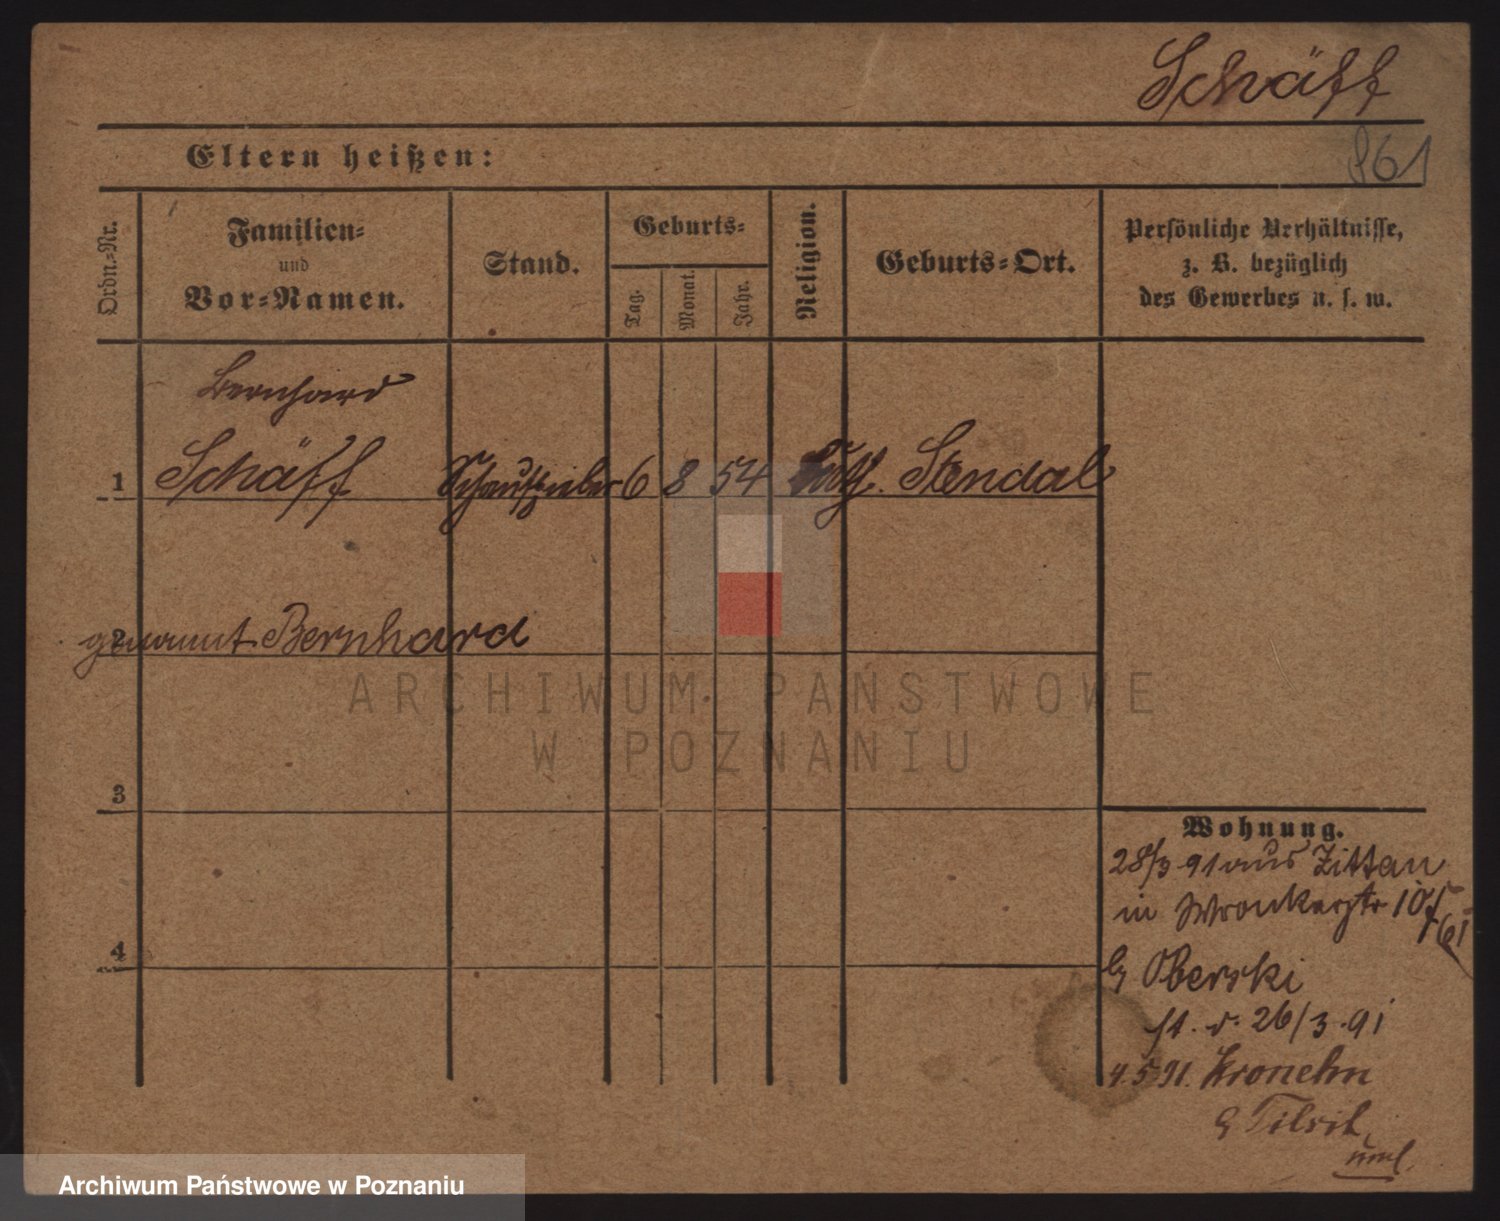 Schäff
861
Eltern heißen:
Ordn.-Nr.
Familien-
und
Vor-Namen.
Stand.
Geburts-
Tag.
Monat.
Jahr.
Religion.
Geburts-Ort.
Persönliche Verhältnisse,
z. B. bezüglich
des Gewerbes u. s. w.
Bernhard
1 Schäff Schauspieler 6 8 54 luth. Stendal
2 genannt Bernhard
3
4
Wohnung.
28/3 91 aus Zittau
in Wronkerstr 10
b/ Oberski
st. v. 26/3.91
4.5.91.
Tilsit
ARCHIWUM PAŃSTWOWE
W POZNANIU
Archiwum Państwowe w Poznaniu